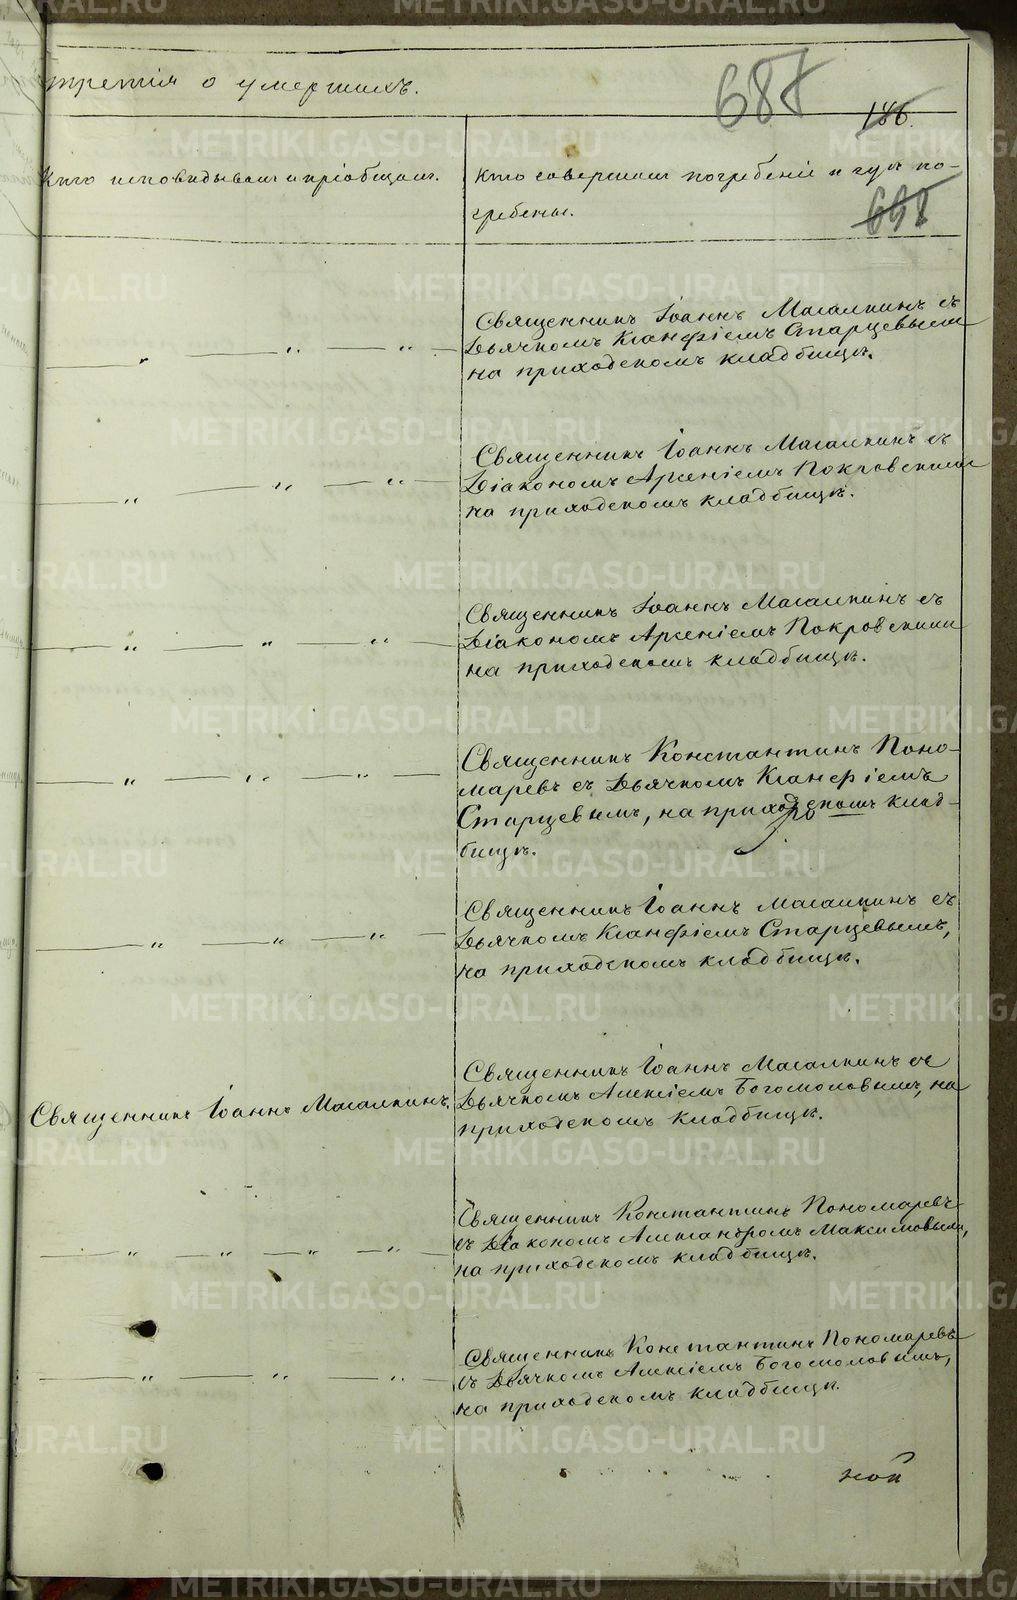 третія о умершихъ.
688
186.
Кто исповѣдывалъ и пріобщалъ.
Кто совершалъ погребеніе и гдѣ по-
гребены.
698
Священникъ Іоаннъ Масалкинъ съ
Дьячкомъ Ксанфіемъ Старцевымъ
на приходскомъ кладбищѣ.
Священникъ Іоаннъ Масалкинъ съ
Діакономъ Арсеніемъ Покровскимъ
на приходскомъ кладбищѣ.
Священникъ Іоаннъ Масалкинъ съ
Діакономъ Арсеніемъ Покровскимъ
на приходскомъ кладбищѣ.
Священникъ Константинъ Поно-
маревъ съ Дьячкомъ Ксанфіемъ
Старцевымъ, на приходскомъ клад-
бищѣ.
Священникъ Іоаннъ Масалкинъ съ
Дьячкомъ Ксанфіемъ Старцевымъ,
на приходскомъ кладбищѣ.
Священникъ Іоаннъ Масалкинъ.
Священникъ Іоаннъ Масалкинъ съ
Дьячкомъ Алексіемъ Богомоловымъ, на
приходскомъ кладбищѣ.
Священникъ Константинъ Пономаревъ
съ Діакономъ Александромъ Максимовымъ,
на приходскомъ кладбищѣ.
Священникъ Константинъ Пономаревъ
съ Дьячкомъ Алексіемъ Богомоловымъ,
на приходскомъ кладбищѣ.
ной
METRIKI.GASO-URAL.RU